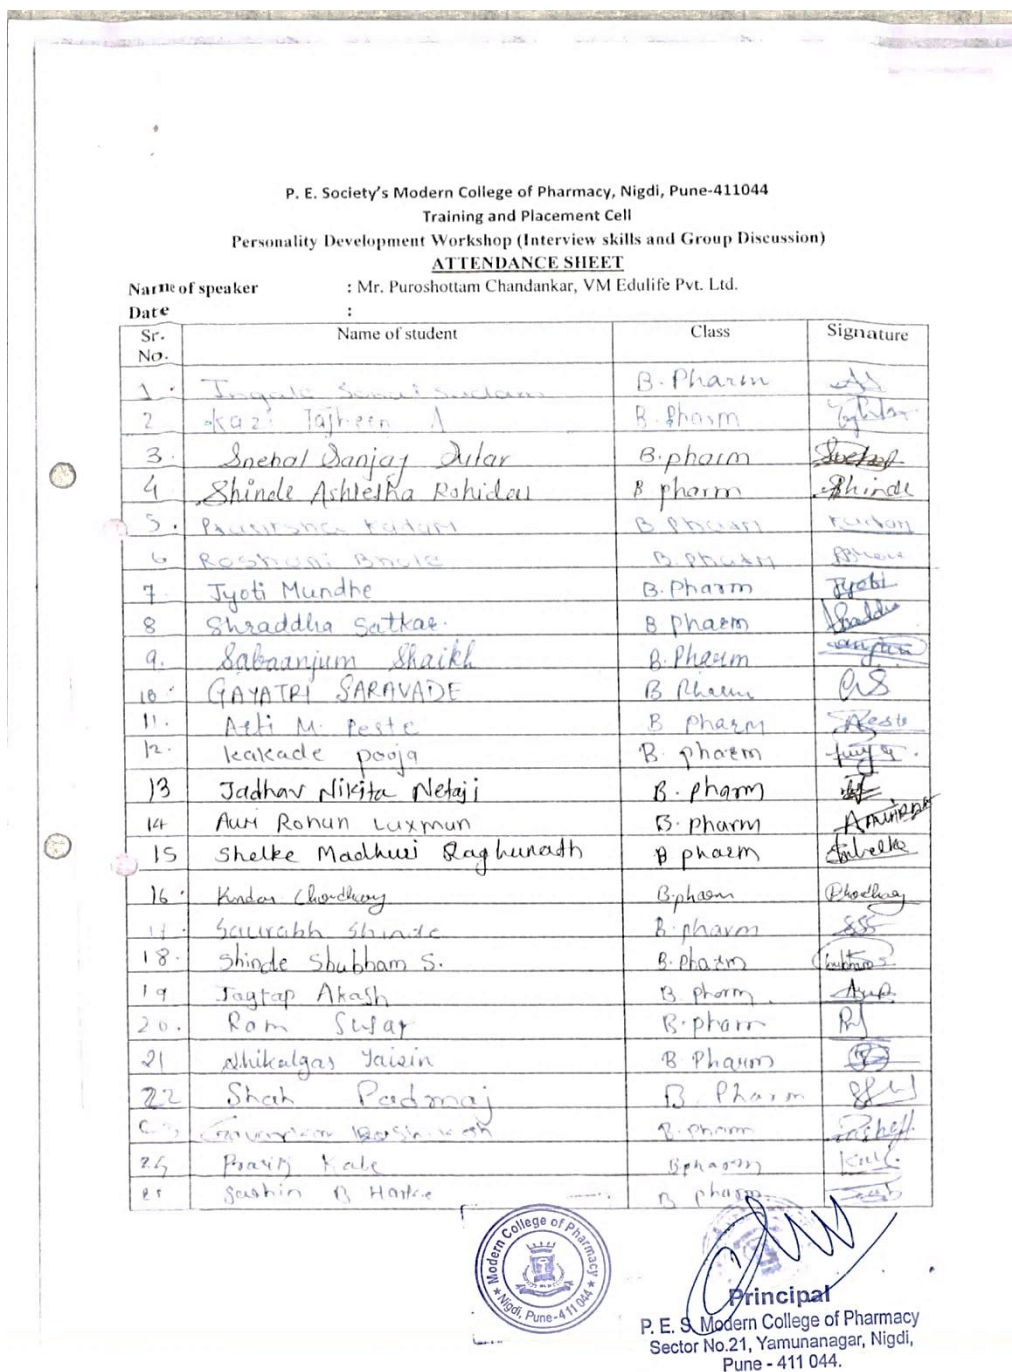 P. E. Society's Modern College of Pharmacy, Nigdi, Pune-411044
Training and Placement Cell
Personality Development Workshop (Interview skills and Group Discussion)
ATTENDANCE SHEET
Name of speaker : Mr. Puroshottam Chandankar, VM Edulife Pvt. Ltd.
Date :
Sr. No. Name of student Class Signature
1. Ingale B. Pharm
2 Kazi B. Pharm
3. Snehal Sanjay Sutar B. pharm
4 Shinde Ashlesha Rohidas B pharm Shinde
5. Kadam B Pharm Kadam
6 Roshani Bhole B. Pharm
7. Jyoti Mundhe B. Pharm Jyoti
8 Shraddha Satkar. B pharm
9. Sabaanjum Shaikh B. Pharm
10. GAYATRI SARAVADE B Pharm GS
11. Arti M. Peste B pharm
12. kakade pooja B. pharm
13 Jadhav Nikita Netaji B. pharm
14 Rohan Luxmun B. pharm
15 Shelke Madhuri Raghunath B pharm Shelke
16. B. pharm
17. Saurabh Shinde B. pharm SSS
18. Shinde Shubham S. B. Pharm
19 Jagtap Akash B pharm.
20. Ram B. pharm
21 Shikalgar Yaisin B Pharm
22 Shah Padmaj B. Pharm
B. pharm
24 Kale B pharm Kale
25 B B pharm
Modern College of Pharmacy
Nigdi, Pune-411 044
Principal
P. E. S. Modern College of Pharmacy
Sector No.21, Yamunanagar, Nigdi,
Pune - 411 044.